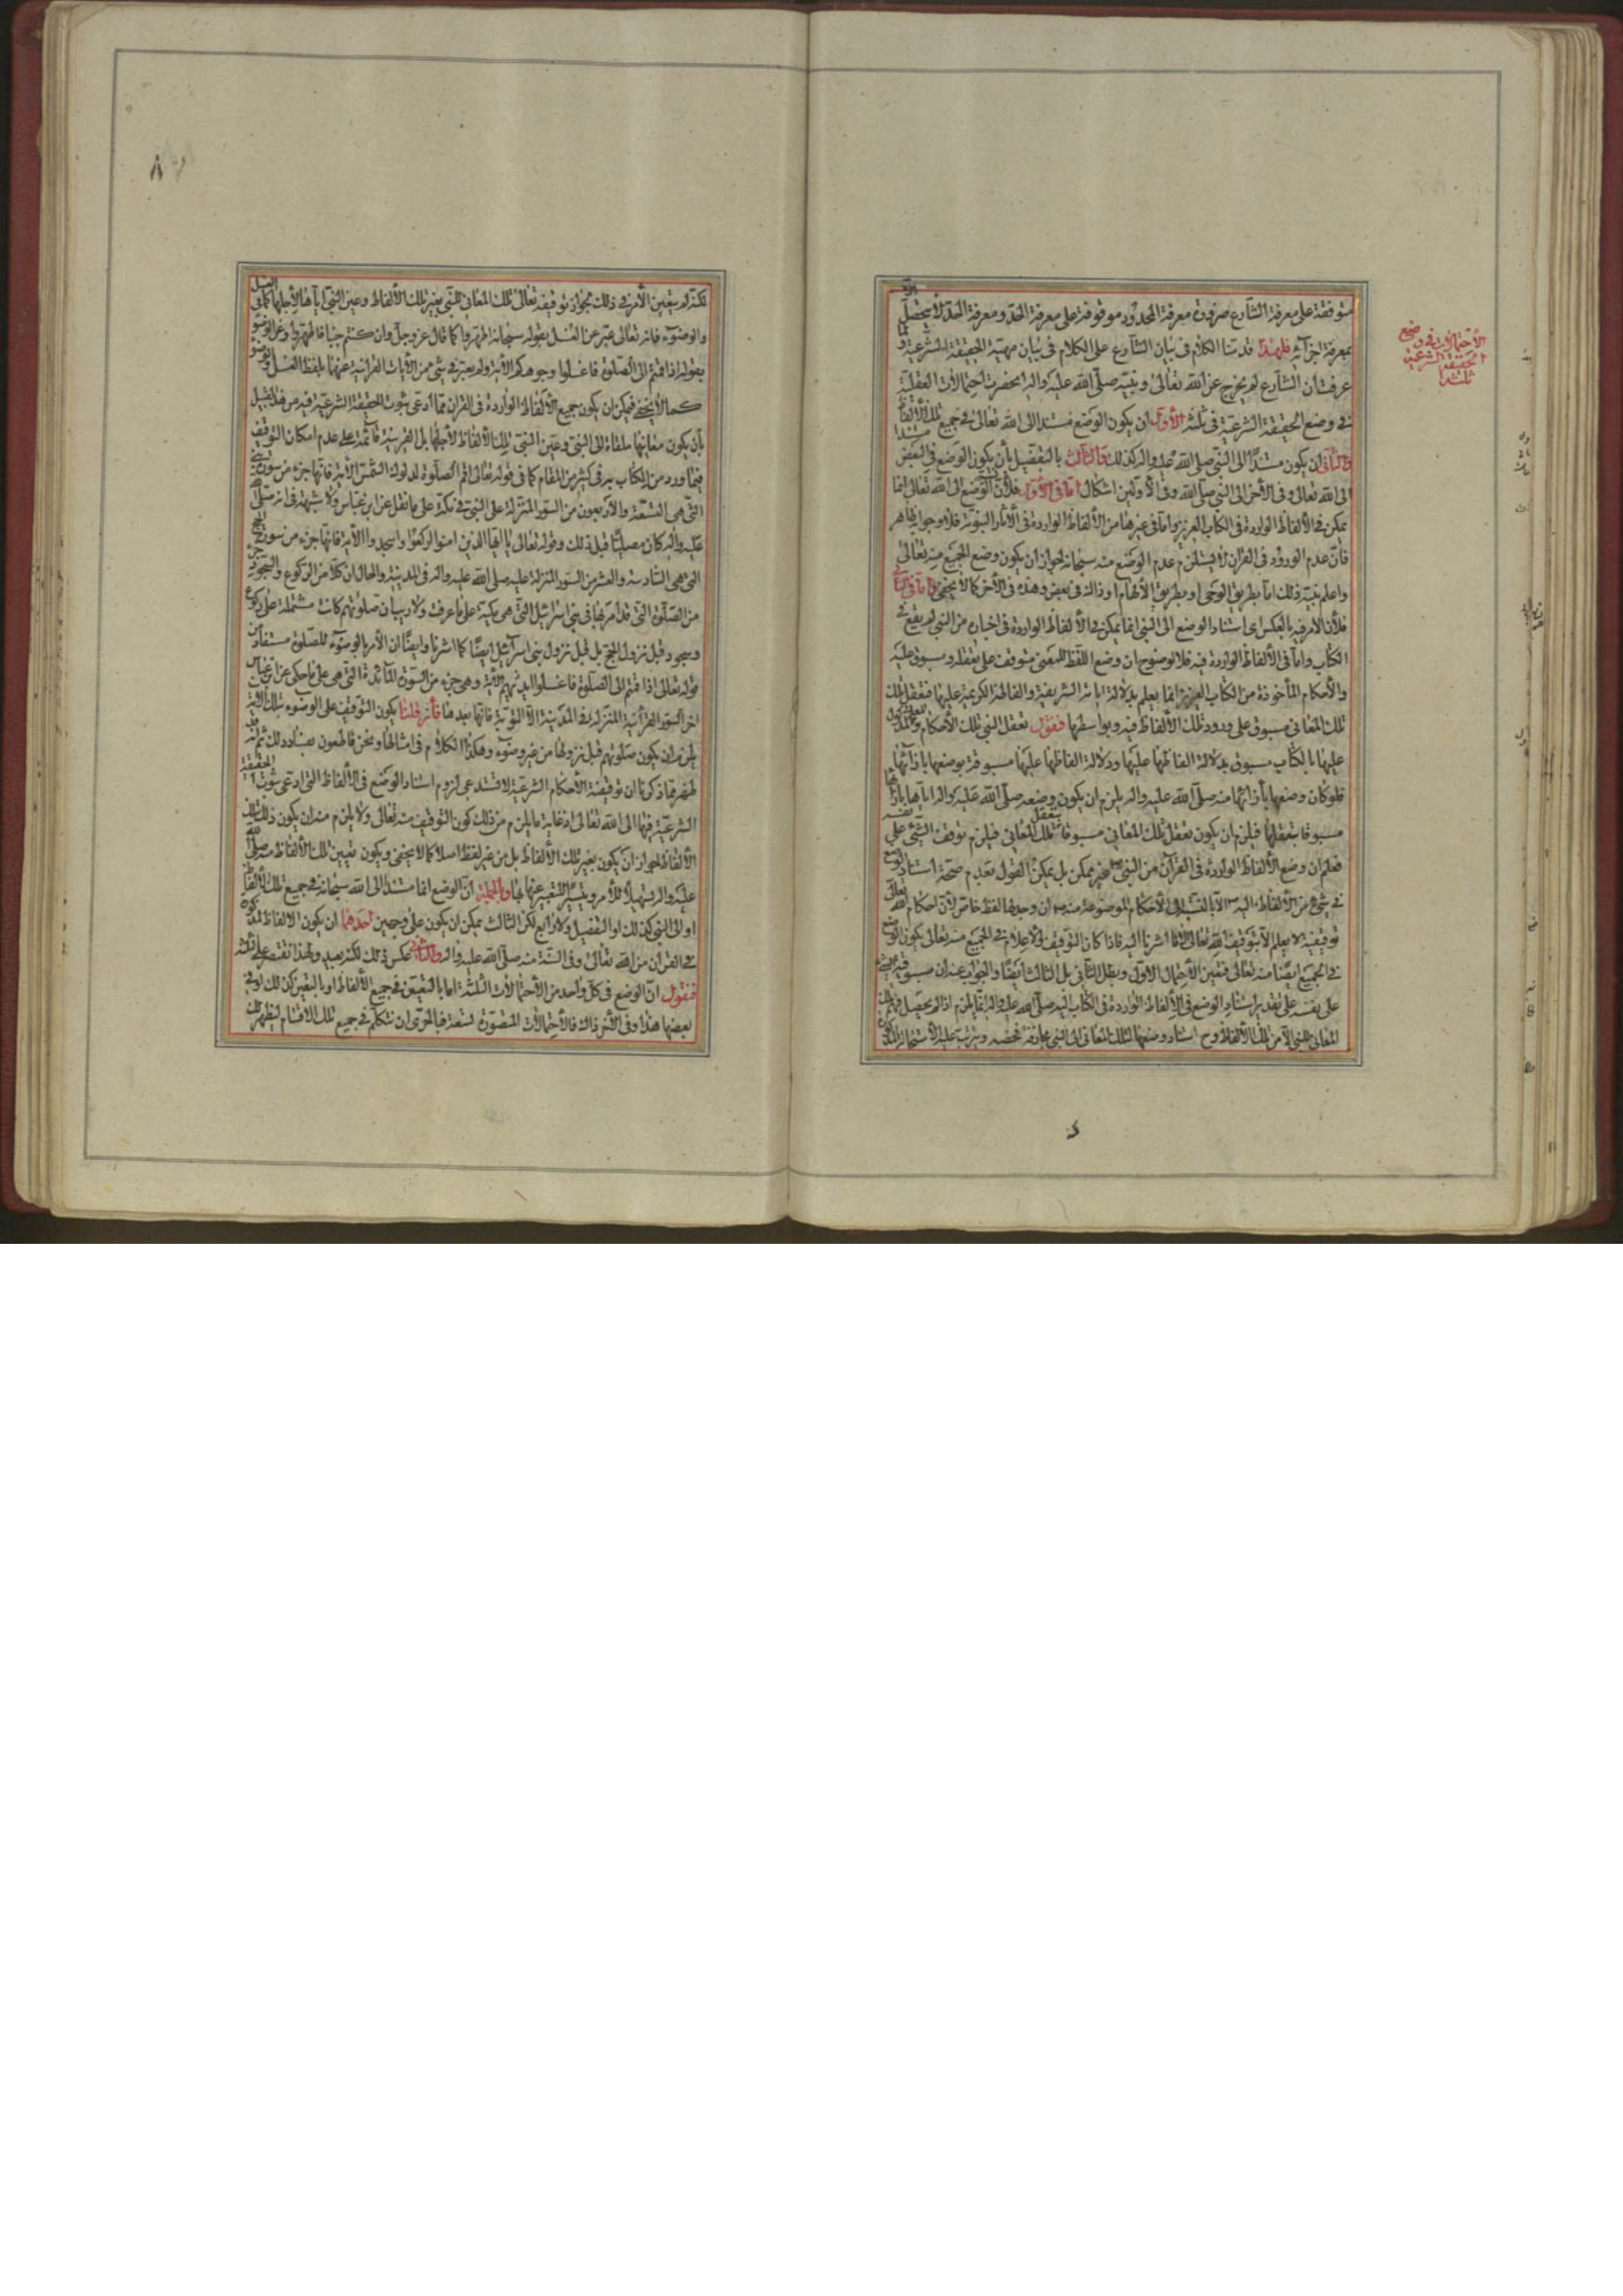 متوقفة على معرفة الشارع ضرورة معرفة المحدود موقوفة على معرفة الحد ومعرفة الحد لا يحصل الا
بمعرفة اجزائه فلهذا قدمنا الكلام فى بيان الشارع على الكلام فى بيان مهية الحقيقة الشرعية و
عرفت ان الشارع لم يخرج عن الله تعالى ونبيه صلى الله عليه واله انحصرت احتمالات العقلية
فى وضع الحقيقة الشرعية فى ثلثة الأول ان يكون الوضع مستندا الى الله تعالى فى جميع تلك الألفاظ
والثانى ان يكون مستندا الى النبى صلى الله عليه واله كذلك والثالث بالتفصيل بأن يكون الوضع فى البعض
الى الله تعالى وفى الأخر الى النبى صلى الله وفى الأولين اشكال اما فى الأول فلأن الوضع الى الله تعالى انما
يمكن فى الألفاظ الواردة فى الكتاب العزيز واما فى غيرها من الألفاظ الواردة فى الأثار النبوية فلا وجوابه ظاهر
فان عدم الورود فى القران لا يستلزم عدم الوضع منه سبحانه لجواز ان يكون وضع الجميع منه تعالى
واعلم نبيه ذلك اما بطريق الوحى او بطريق الألهام او ذاك فى بعض وهذه فى الأخر كما لا يخفى واما فى الثانى
فلأن الامر فيه بالعكس اى استناد الوضع الى النبى انما يمكن فى الألفاظ الواردة فى اخباره من النبى لم يقع فى
الكتاب واما فى الألفاظ الواردة فيه فلا لوضوح ان وضع اللفظ للمعنى متوقف على تعقله ومسبوق عليه
والأحكام المأخوذة من الكتاب العزيز انما يعلم بدلالة اياته الشريفة والفاظه الكريمة عليها فتعقل تلك
تلك المعانى مسبوق على ورود تلك الألفاظ فيه وبواسطها فنقول تعقل النبى تلك الأحكام
عليها بالكتاب مسبوق بدلالة الفاظها عليها ودلالة الفاظها عليها مسبوقة بوضعها بازائها
فلو كان وضعها بأزائها منه صلى الله عليه واله يلزم ان يكون وضعه صلى الله عليه واله اياها بازائها
مسبوقا بتعقلها فيلزم ان يكون تعقل تلك المعانى مسبوقا بتعقل تلك المعانى فيلزم توقف الشئ على نفسه
فعلم ان وضع الألفاظ الواردة فى القران من النبى ص غير ممكن بل يمكن القول بعدم صحة استناد الوضع
فى شئ من الألفاظ اليه الا بالنسبة الى الأحكام الموضوعة منه ص ان وجد لها لفظ خاص لأن احكام الله تعالى
توقيفية لا يعلم الا بتوقيف الله تعالى كما اشرنا اليه فاذا كان التوقيف والاعلام فى الجميع منه تعالى يكون الوضع
فى الجميع ايضا منه تعالى فتعين الأحتمال الأول وبطل الثانى بل الثالث ايضا والجواب عنه ان مسبوقية الشئ
على نفسه على تقدير استناد الوضع فى الألفاظ الواردة فى الكتاب اليه صلى الله عليه واله انما يلزم اذا لم يحصل فهم تلك
المعانى للنبى الا من تلك الألفاظ وح استناد وضعها لتلك المعانى الى النبى مجازفة محضة ويترتب عليه الأستحالة المذكورة
الأحتمالات فى وضع
الحقيقة الشرعية
ثلثة
لكنه لم يتعين الأمر فى ذلك لجواز توقيفه تعالى تلك المعانى للنبى بغير تلك الألفاظ وعين النبى اياها لأجلها كما فى الغسل
والوضوء فانه تعالى عبر عن الغسل بقوله سبحانه اطهروا كما قال عز وجل وان كنتم جنبا فاطهروا وعن الوضوء
بقوله اذا قمتم الى الصلوة فاغسلوا وجوهكم الأية ولم يعبر فى شئ من الأيات القرانية عنهما بلفظ الغسل والوضوء
كما لا يخفى فيمكن ان يكون جميع الألفاظ الواردة فى القران مما ادعى ثبوت الحقيقة الشرعية فيه من هذا القبيل
بأن يكون معانيها ملقاة الى النبى وعين النبى تلك الألفاظ لأجلها بل القرينة قائمة على عدم امكان التوقيف
فيما ورد من الكتاب به فى كثير من المقام كما فى قوله تعالى اقم الصلوة لدلوك الشمس الأية فانها جزء من سورة بنى
التى هى التسعة والأربعون من السور المنزلة على النبى فى مكة على ما نقل عن ابن عباس ولا شبهة فى انه صلى الله
عليه واله كان مصليا قبل ذلك وقوله تعالى يا ايها الذين امنوا اركعوا واسجدوا الأية فانها جزء من سورة الحج
التى هى السادسة والعشر من السور المنزلة عليه صلى الله عليه واله فى المدينة والحال ان كلا من الركوع والسجود جزء
من الصلوة التى قد امر بها فى بنى اسرائيل التى هى مكية على ما عرفت ولا ريب ان صلوتهم كانت مشتملة على ركوع
وسجود قبل نزول الحج بل قبل نزول بنى اسرائيل ايضا كما اشرنا وايضا ان الأمر بالوضوء للصلوة مستفاد من
قوله تعالى اذا قمتم الى الصلوة فاغسلوا ايديكم الأية وهى جزء من السورة المائدة التى هى على ما حكى عن ابن عباس
اخر السور القرانية المنزلة فى المدينة الا التوبة فانها بعدها فأن قلنا يكون التوقيف على الوضوء بتلك الأية
يلزم ان يكون صلوتهم قبل نزولها من غير وضوء وهكذا الكلام فى امثالها ونحن قاطعون بفساد ذلك ثم انه قد
ظهر مما ذكرنا ان توقيفية الأحكام الشرعية لا تستدعى لزوم استناد الوضع فى الألفاظ التى ادعى ثبوت الحقيقة
الشرعية فيها الى الله تعالى اذ غاية ما يلزم من ذلك كون التوقيف منه تعالى ولا يلزم منه ان يكون ذلك بتلك
الألفاظ لجواز ان يكون بغير تلك الألفاظ بل من غير لفظ اصلا كما لا يخفى ويكون تعيين تلك الألفاظ منه صلى الله
عليه واله تسهيلا للأمر وتيسيرا للتعبير عنها بها وبالجملة ان الوضع اما مستند الى الله سبحانه فى جميع تلك الألفاظ
او الى النبى كذلك او التفصيل ولا رابع لكن الثالث يمكن ان يكون على وجهين احدهما ان يكون الالفاظ المذكورة
فى القران من الله تعالى وفى السنة منه صلى الله عليه واله والثانى عكس ذلك لكنه بعيد ولهذا نقتصر على ثلثة
فنقول ان الوضع فى كل واحد من الأحتمالات الثلثة اما بالتعيين فى جميع الألفاظ او بالتعين كذلك او فى
بعضها هذا وفى الأخر ذاك فالأحتمالات المتصورة تسعة فبالحرى ان نتكلم فى جميع تلك الاقسام ليظهر لك